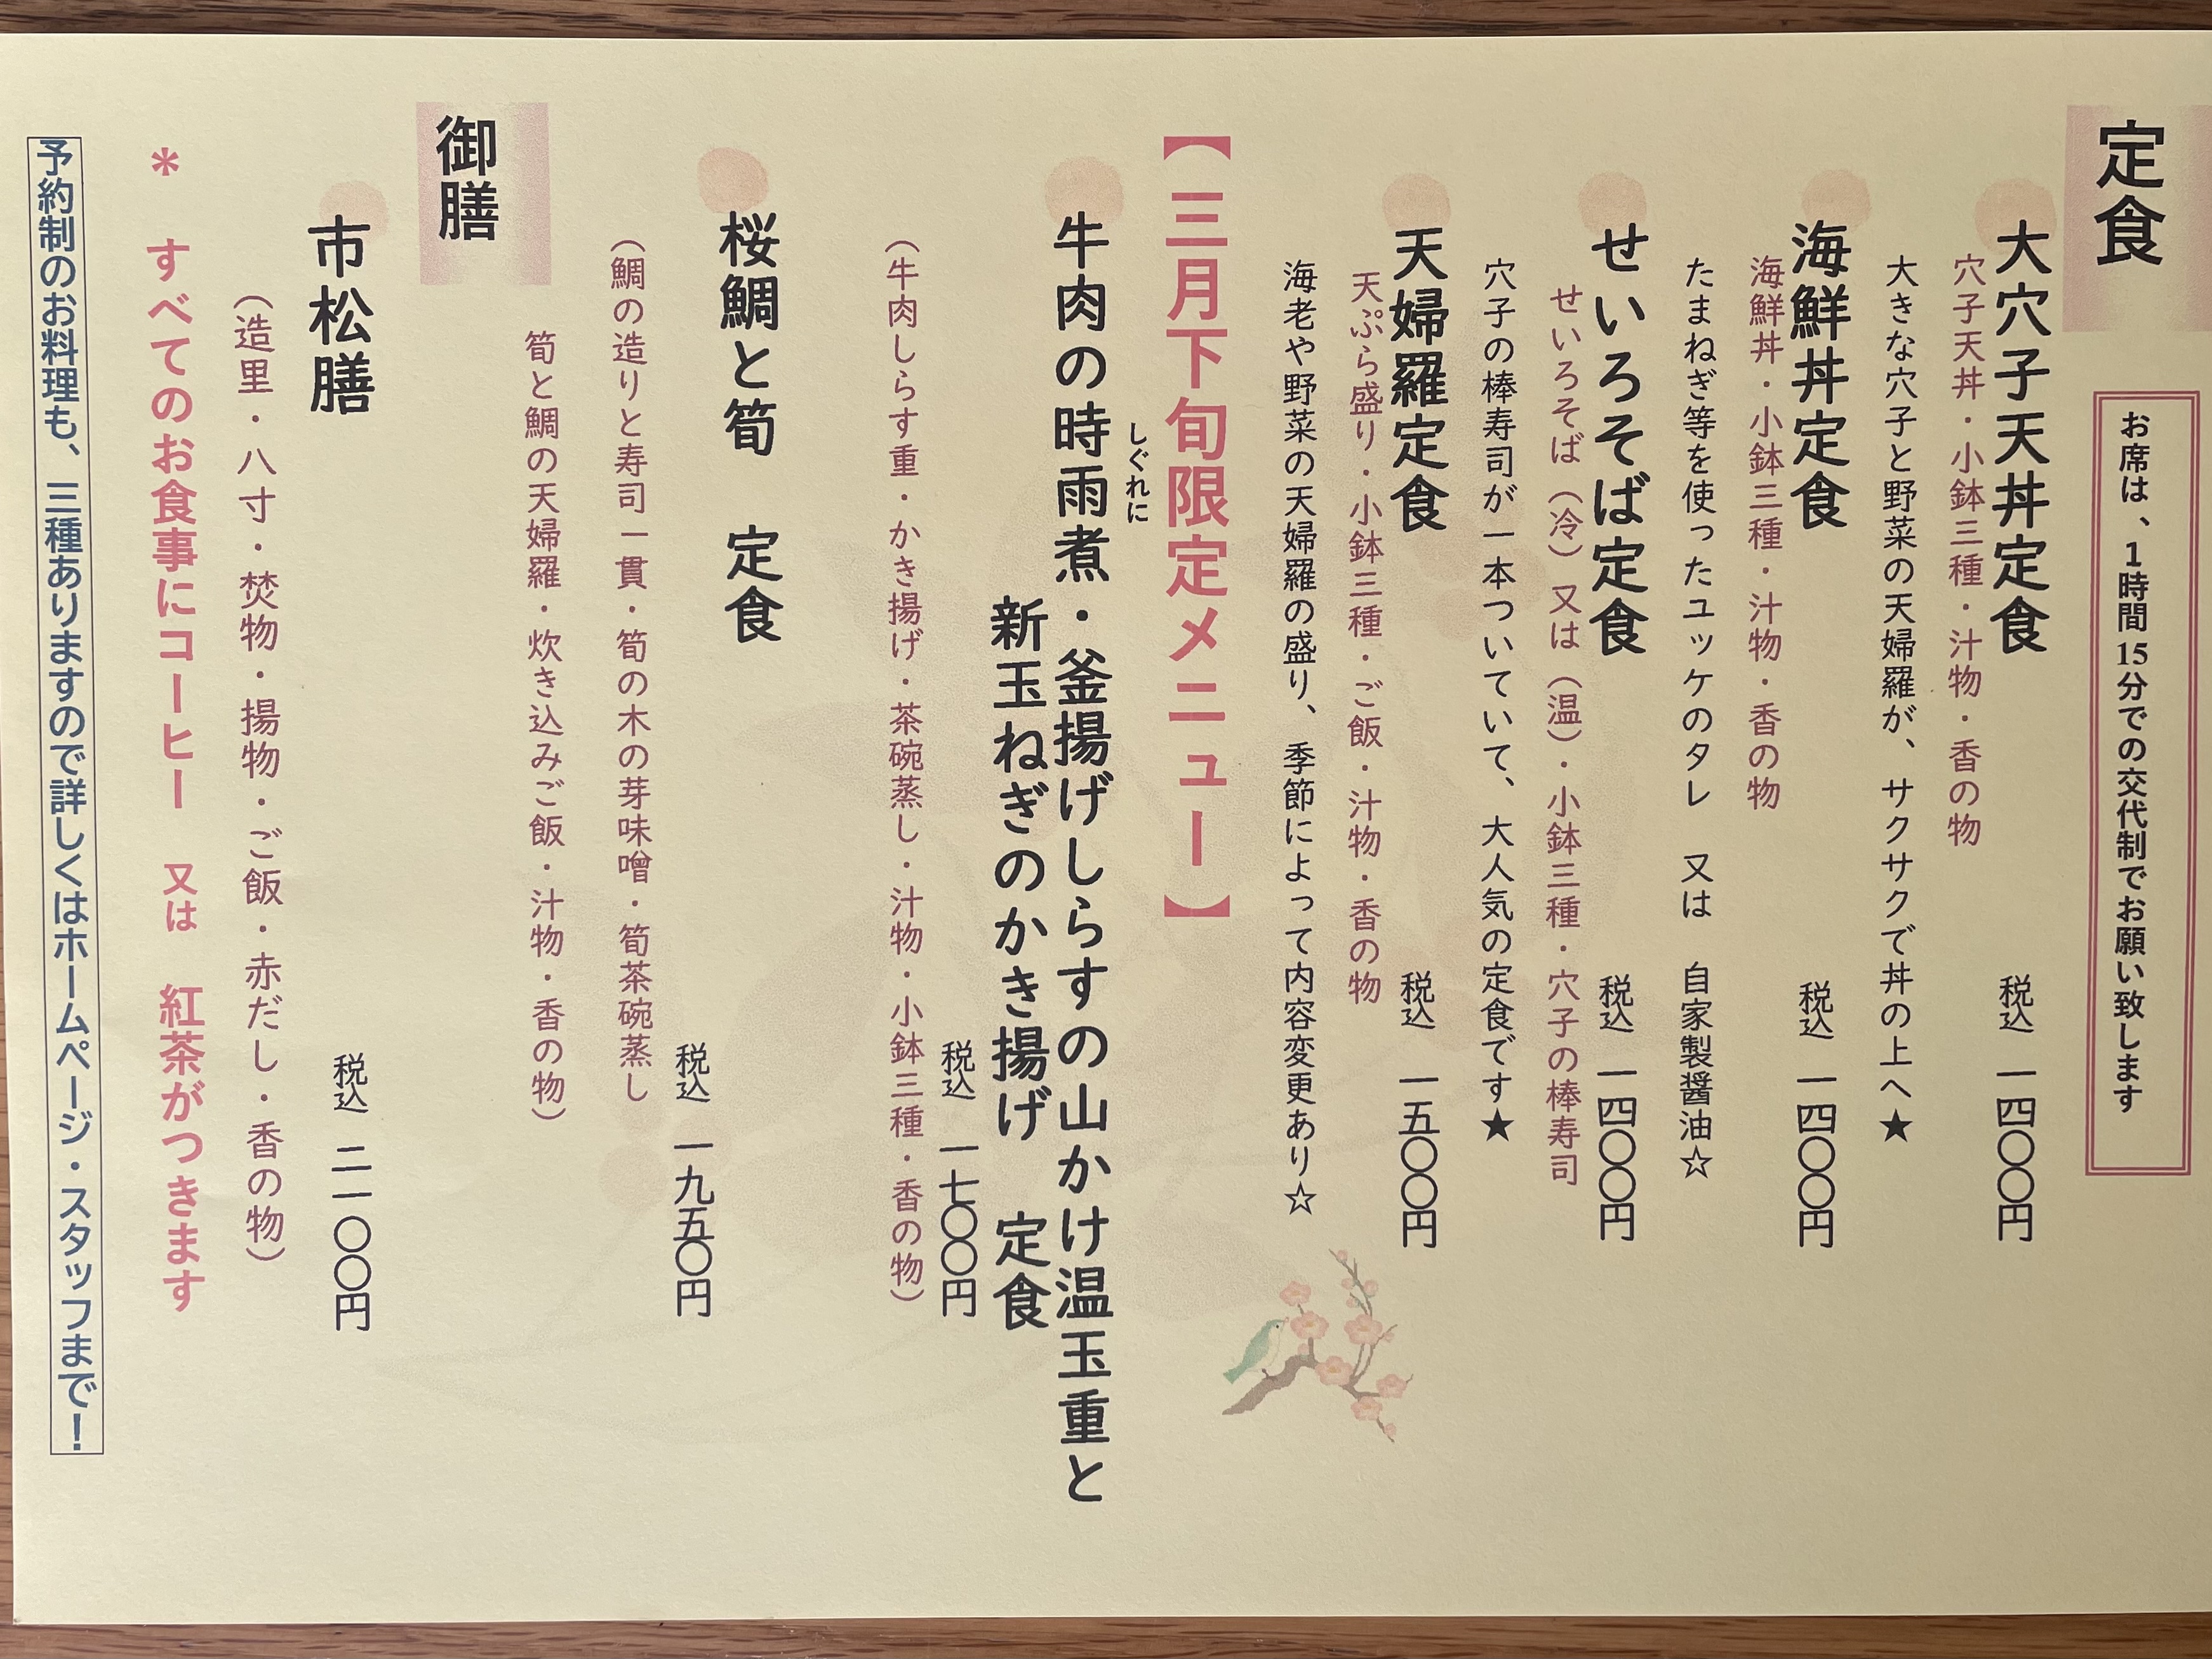 定食
お席は、1時間15分での交代制でお願い致します
大穴子天丼定食 税込 一四〇〇円
穴子天丼・小鉢三種・汁物・香の物
大きな穴子と野菜の天婦羅が、サクサクで丼の上へ★
海鮮丼定食 税込 一四〇〇円
海鮮丼・小鉢三種・汁物・香の物
たまねぎ等を使ったユッケのタレ 又は 自家製醤油☆
せいろそば定食 税込 一四〇〇円
せいろそば（冷）又は（温）・小鉢三種・穴子の棒寿司
穴子の棒寿司が一本ついていて、大人気の定食です★
天婦羅定食 税込 一五〇〇円
天ぷら盛り・小鉢三種・ご飯・汁物・香の物
海老や野菜の天婦羅の盛り、季節によって内容変更あり☆
【三月下旬限定メニュー】
しぐれに
牛肉の時雨煮・釜揚げしらすの山かけ温玉重と
新玉ねぎのかき揚げ 定食
税込 一七〇〇円
（牛肉しらす重・かき揚げ・茶碗蒸し・汁物・小鉢三種・香の物）
桜鯛と筍 定食
税込 一九五〇円
（鯛の造りと寿司一貫・筍の木の芽味噌・筍茶碗蒸し
筍と鯛の天婦羅・炊き込みご飯・汁物・香の物）
御膳
市松膳 税込 二一〇〇円
（造里・八寸・焚物・揚物・ご飯・赤だし・香の物）
＊ すべてのお食事にコーヒー 又は 紅茶がつきます
予約制のお料理も、三種ありますので詳しくはホームページ・スタッフまで！